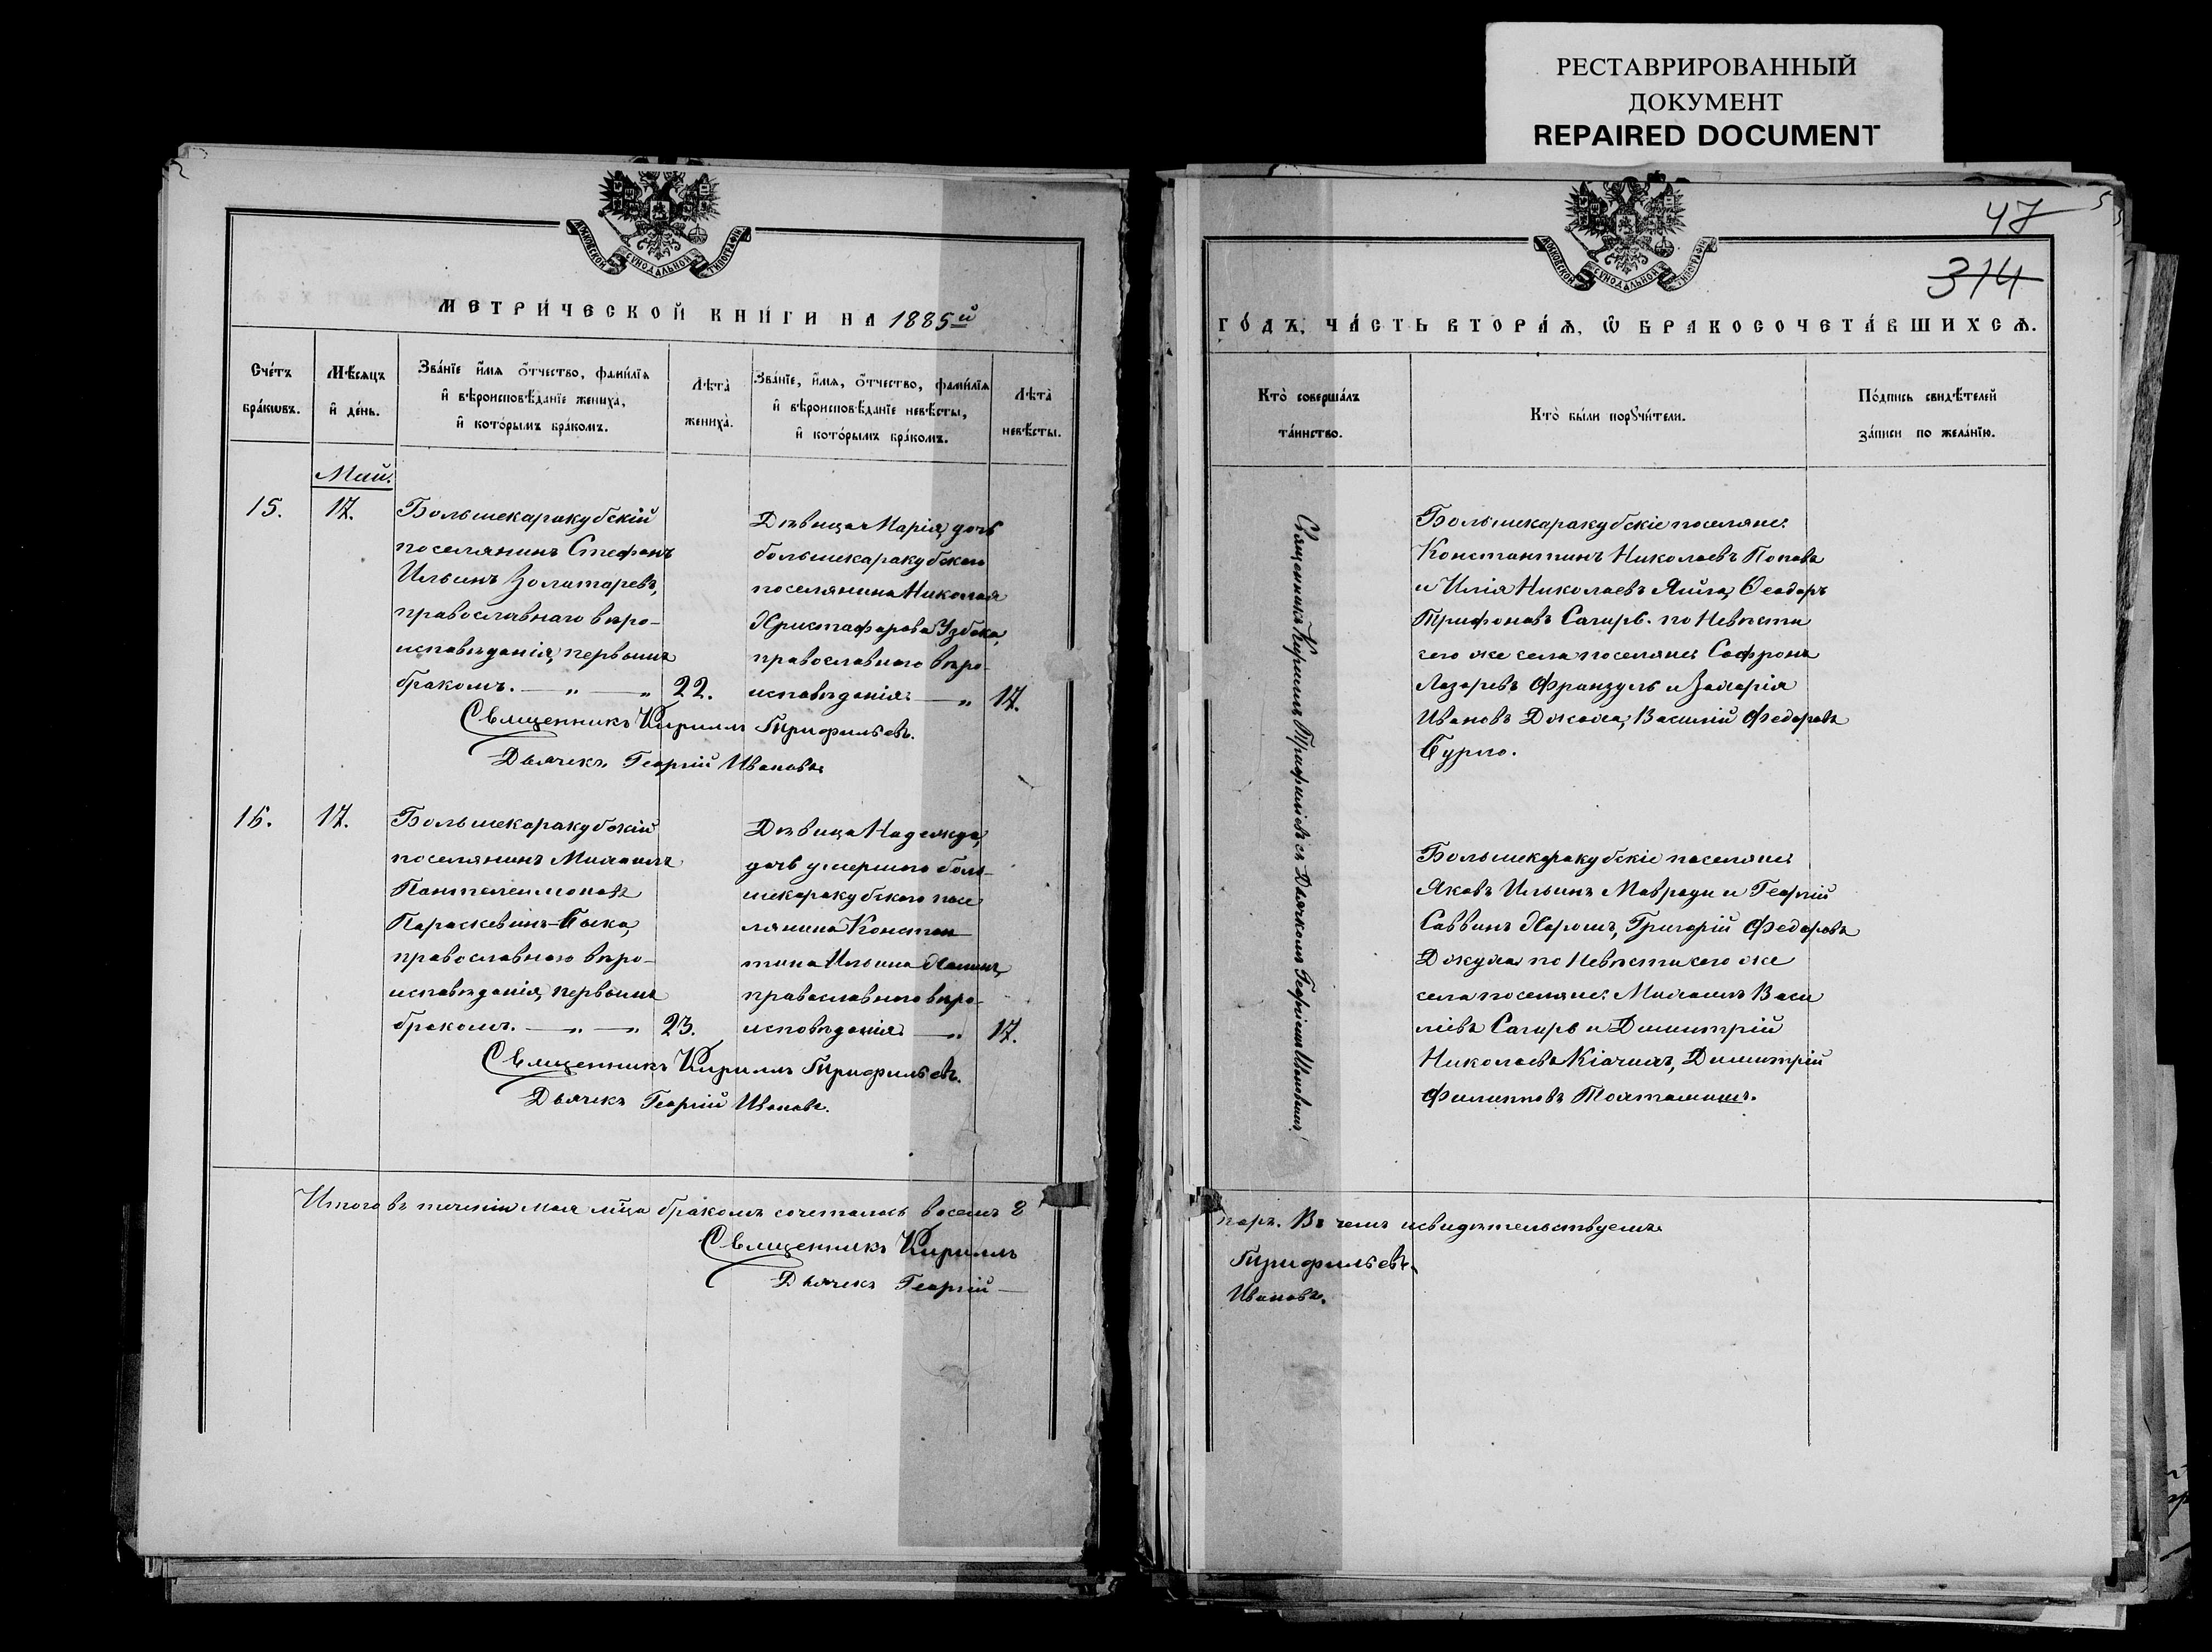 РЕСТАВРИРОВАННЫЙ
ДОКУМЕНТ
REPAIRED DOCUMENT
МОСКОВСКОЙ СѴНОДАЛЬНОЙ ТИПОГРАФІИ
МЕТРИ́ЧЕСКОЙ КНИ́ГИ НА 1885й
Сче́тъ бра́кѡвъ.
Мѣ́сяцъ и҆ де́нь.
Зва́нїе и҆́мя ѻ҆́тчество, фами́лїя
и҆ вѣроисповѣ́данїе жениха̀,
и҆ кото́рымъ бра́комъ.
Лѣта̀ жениха̀.
Зва́нїе, и҆́мя, ѻ҆́тчество, фами́лїя
и҆ вѣроисповѣ́данїе невѣ́сты,
и҆ кото́рымъ бра́комъ.
Лѣта̀ невѣ́сты.
Май.
15.
17.
Большекаракубскій
поселянинъ Стефанъ
Ильинъ Золотаревъ,
православнаго вѣро-
исповѣданія, первымъ
бракомъ. — „ — „
22.
Дѣвица Марія, дочь
большекаракубскаго
поселянина Николая
Христафорова Узбека,
православнаго вѣро-
исповѣданія. — „
17.
Священникъ Кириллъ Трифильевъ.
Дьячекъ Георгій Ивановъ.
16.
17.
Большекаракубскій
поселянинъ Михаилъ
Пантелеимоновъ
Параскевинъ-Быка,
православнаго вѣро-
исповѣданія, первымъ
бракомъ. — „ — „
23.
Дѣвица Надежда,
дочь умершаго боль-
шекаракубскаго посе
лянина Констан-
тина Ильина
православнаго вѣро-
исповѣданія. — „
17.
Священникъ Кириллъ Трифильевъ.
Дьячекъ Георгій Ивановъ.
Итого въ теченіи мая мца бракомъ сочеталось восемъ 8
Священникъ Кириллъ
Дьячекъ Георгій —
47
314
МОСКОВСКОЙ СѴНОДАЛЬНОЙ ТИПОГРАФІИ
ГО́ДЪ, ЧА́СТЬ ВТОРА́Ѧ, Ѡ҆ БРАКОСОЧЕТА́ВШИХСѦ.
Кто̀ соверша́лъ
та́инство.
Кто̀ бы́ли порꙋчи́тели.
По́дпись свидѣ́телей
за́писи по жела́нїю.
Священникъ Кириллъ Трифиліевъ съ Дьячкомъ Георгіемъ Ивановымъ.
Большекаракубскіе поселяне:
Константинъ Николаевъ Поповъ
и Илія Николаевъ Яйла, Ѳеодоръ
Трифоновъ Сагирь. по Невѣсти
сего же села поселяне: Софронъ
Лазаревъ Франзулъ и Захарія
Ивановъ Джаха, Василій Федоровъ
Бурло.
Большекаракубскіе поселяне:
Яковъ Ильинъ Мавроди и Георгій
Саввинъ Харошъ, Григорій Федоровъ
Джуха по Невѣсти сего же
села поселяне: Михаилъ Васи
ліевъ Сагирь и Димитрій
Николаевъ Димитрій
Филипповъ
паръ. Въ чемъ и свидѣтельствуемъ.
Трифильевъ.
Ивановъ.